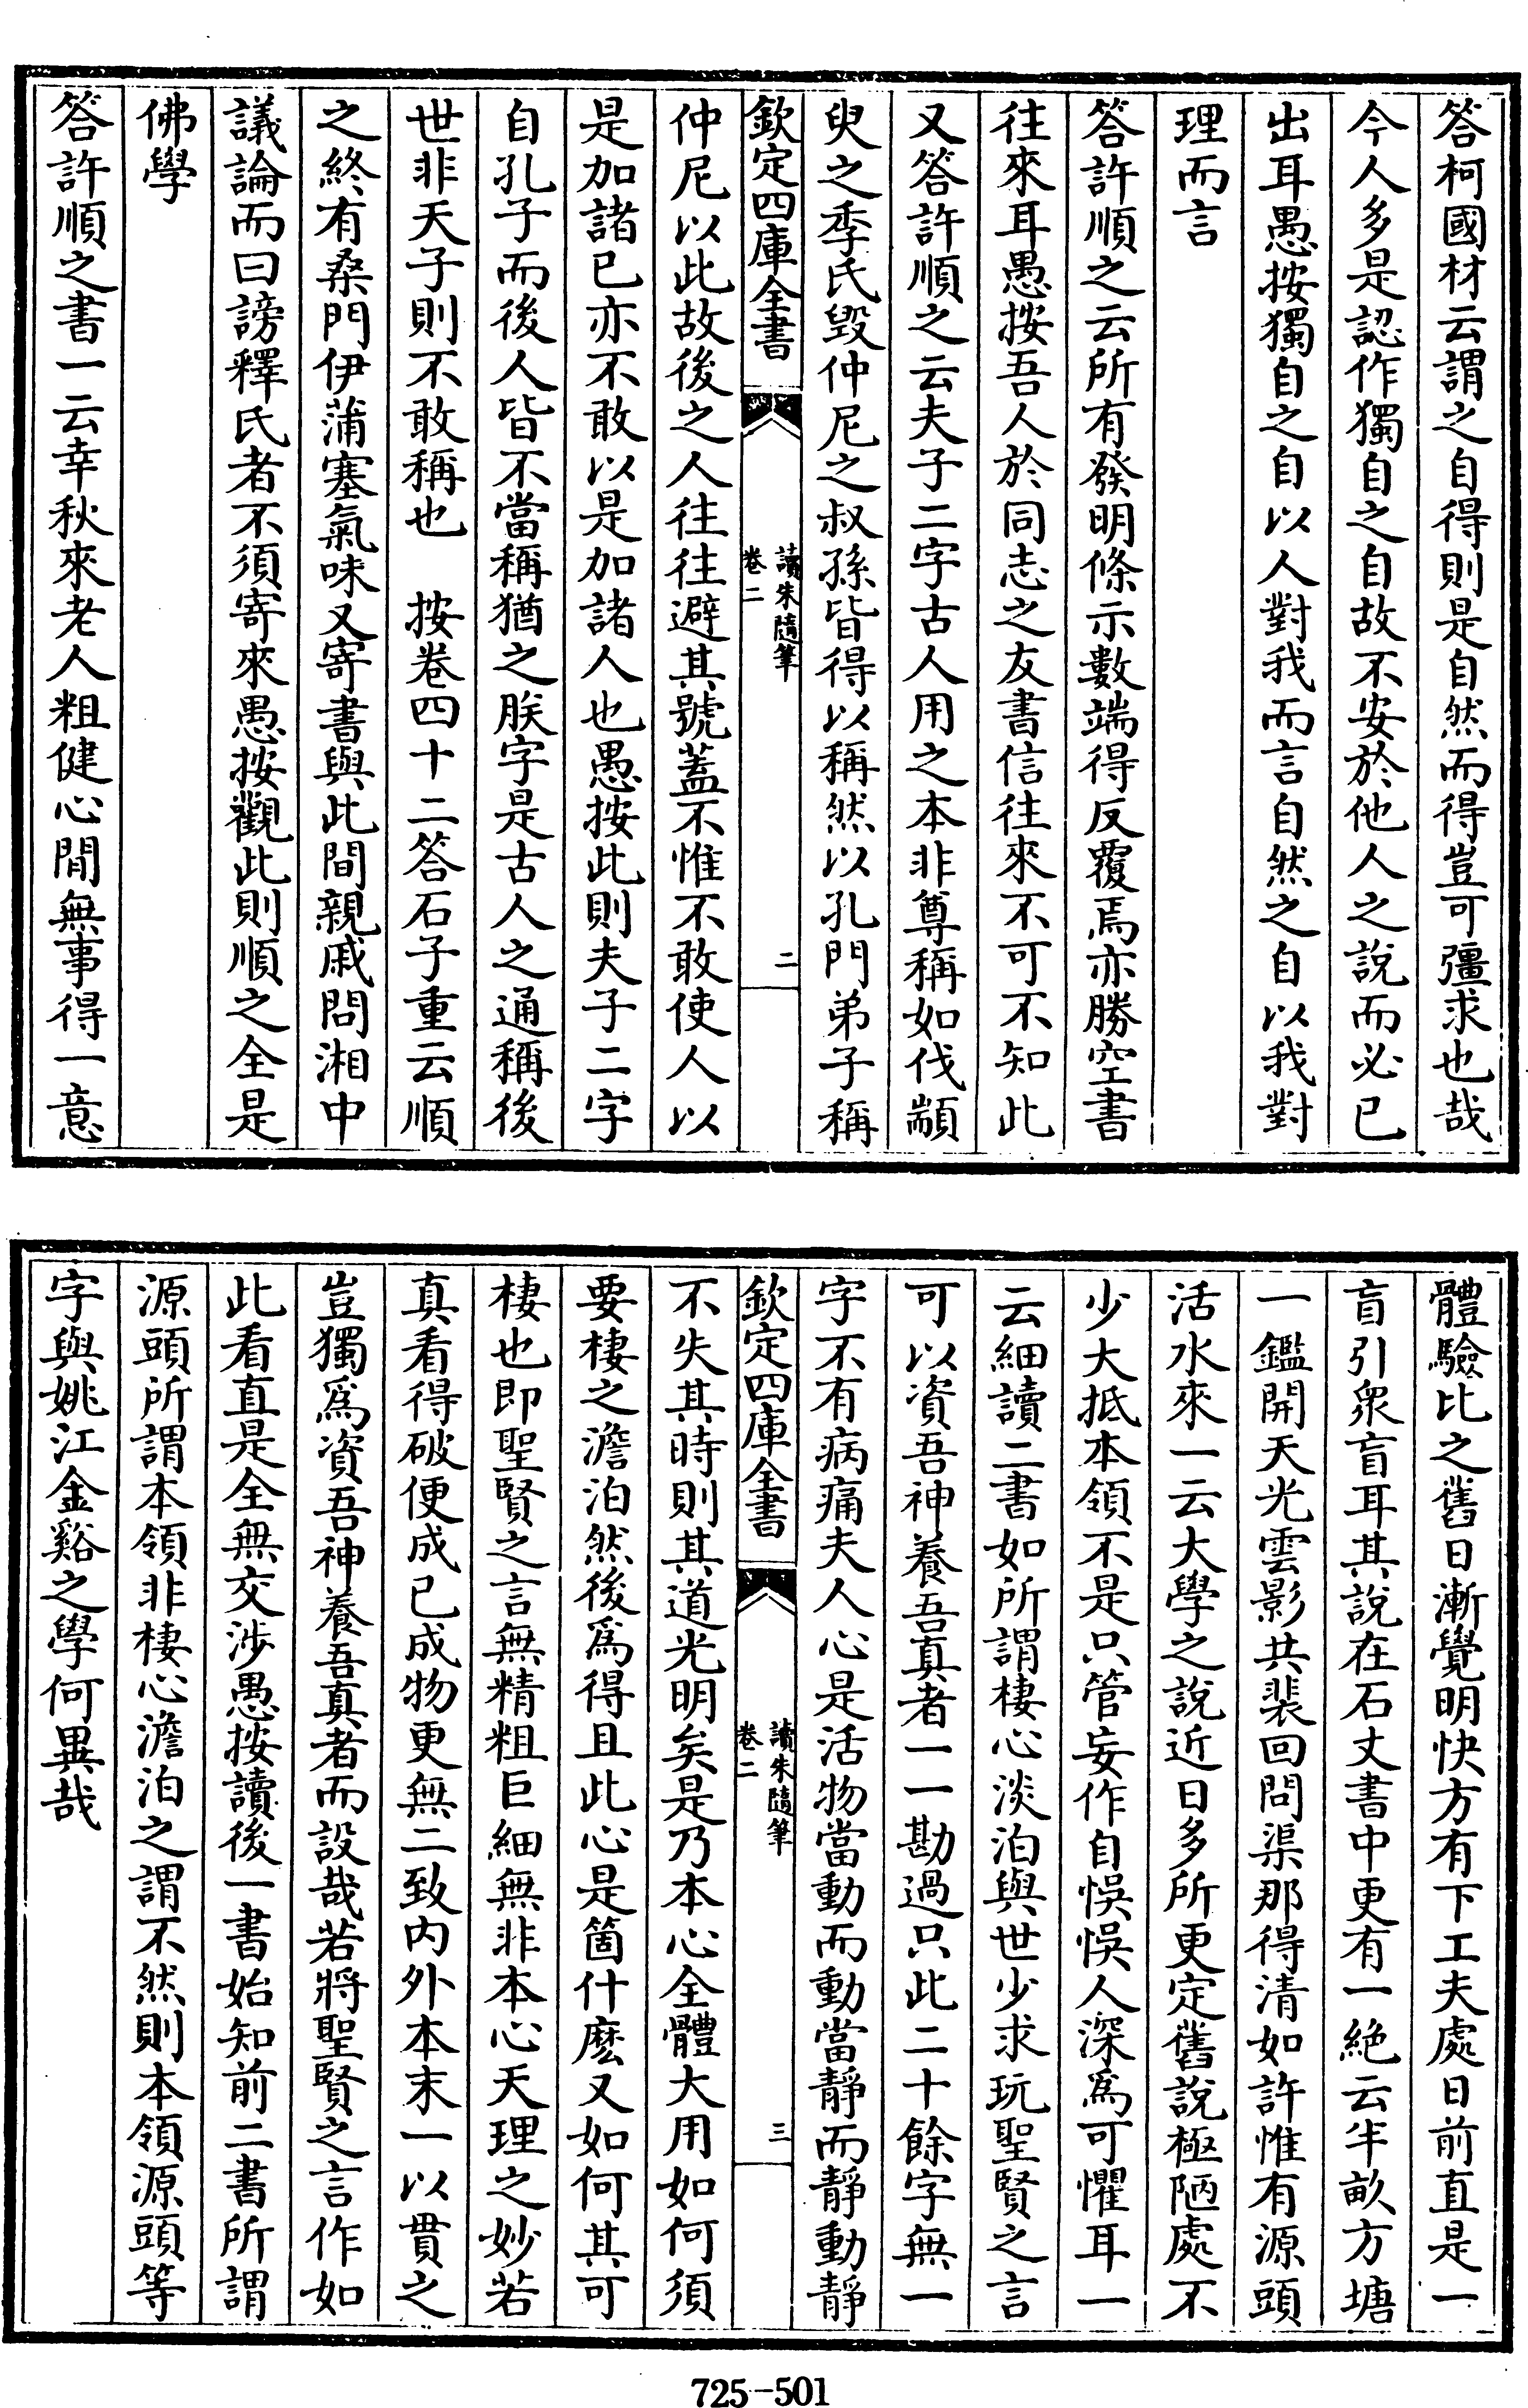 答柯國材云謂之自得則是自然而得豈可彊求也哉
今人多是認作獨自之自故不安於他人之說而必已
出耳愚按獨自之自以人對我而言自然之自以我對
理而言
答許順之云所有發明條示數端得反覆焉亦勝空書
往來耳愚按吾人於同志之友書信往來不可不知此
又答許順之云夫子二字古人用之本非尊稱如伐顓
臾之季氏毀仲尼之叔孫皆得以稱然以孔門弟子稱
欽定四庫全書
讀朱隨筆
卷二
二
仲尼以此故後之人往往避其號蓋不惟不敢使人以
是加諸已亦不敢以是加諸人也愚按此則夫子二字
自孔子而後人皆不當稱猶之朕字是古人之通稱後
世非天子則不敢稱也 按卷四十二答石子重云順
之終有桑門伊蒲塞氣味又寄書與此間親戚問湘中
議論而曰謗釋氏者不須寄來愚按觀此則順之全是
佛學
答許順之書一云幸秋來老人粗健心閒無事得一意
體驗比之舊日漸覺明快方有下工夫處日前直是一
盲引衆盲耳其說在石丈書中更有一絶云半畝方塘
一鑑開天光雲影共裴回問渠那得清如許惟有源頭
活水來一云大學之說近日多所更定舊說極陋處不
少大抵本領不是只管妄作自悞悞人深爲可懼耳一
云細讀二書如所謂棲心淡泊與世少求玩聖賢之言
可以資吾神養吾真者一一勘過只此二十餘字無一
字不有病痛夫人心是活物當動而動當靜而靜動靜
欽定四庫全書
讀朱隨筆
卷二
三
不失其時則其道光明矣是乃本心全體大用如何須
要棲之澹泊然後爲得且此心是箇什麽又如何其可
棲也即聖賢之言無精粗巨細無非本心天理之妙若
真看得破便成已成物更無二致内外本末一以貫之
豈獨爲資吾神養吾真者而設哉若將聖賢之言作如
此看直是全無交涉愚按讀後一書始知前二書所謂
源頭所謂本領非棲心澹泊之謂不然則本領源頭等
字與姚江金谿之學何異哉
725-501